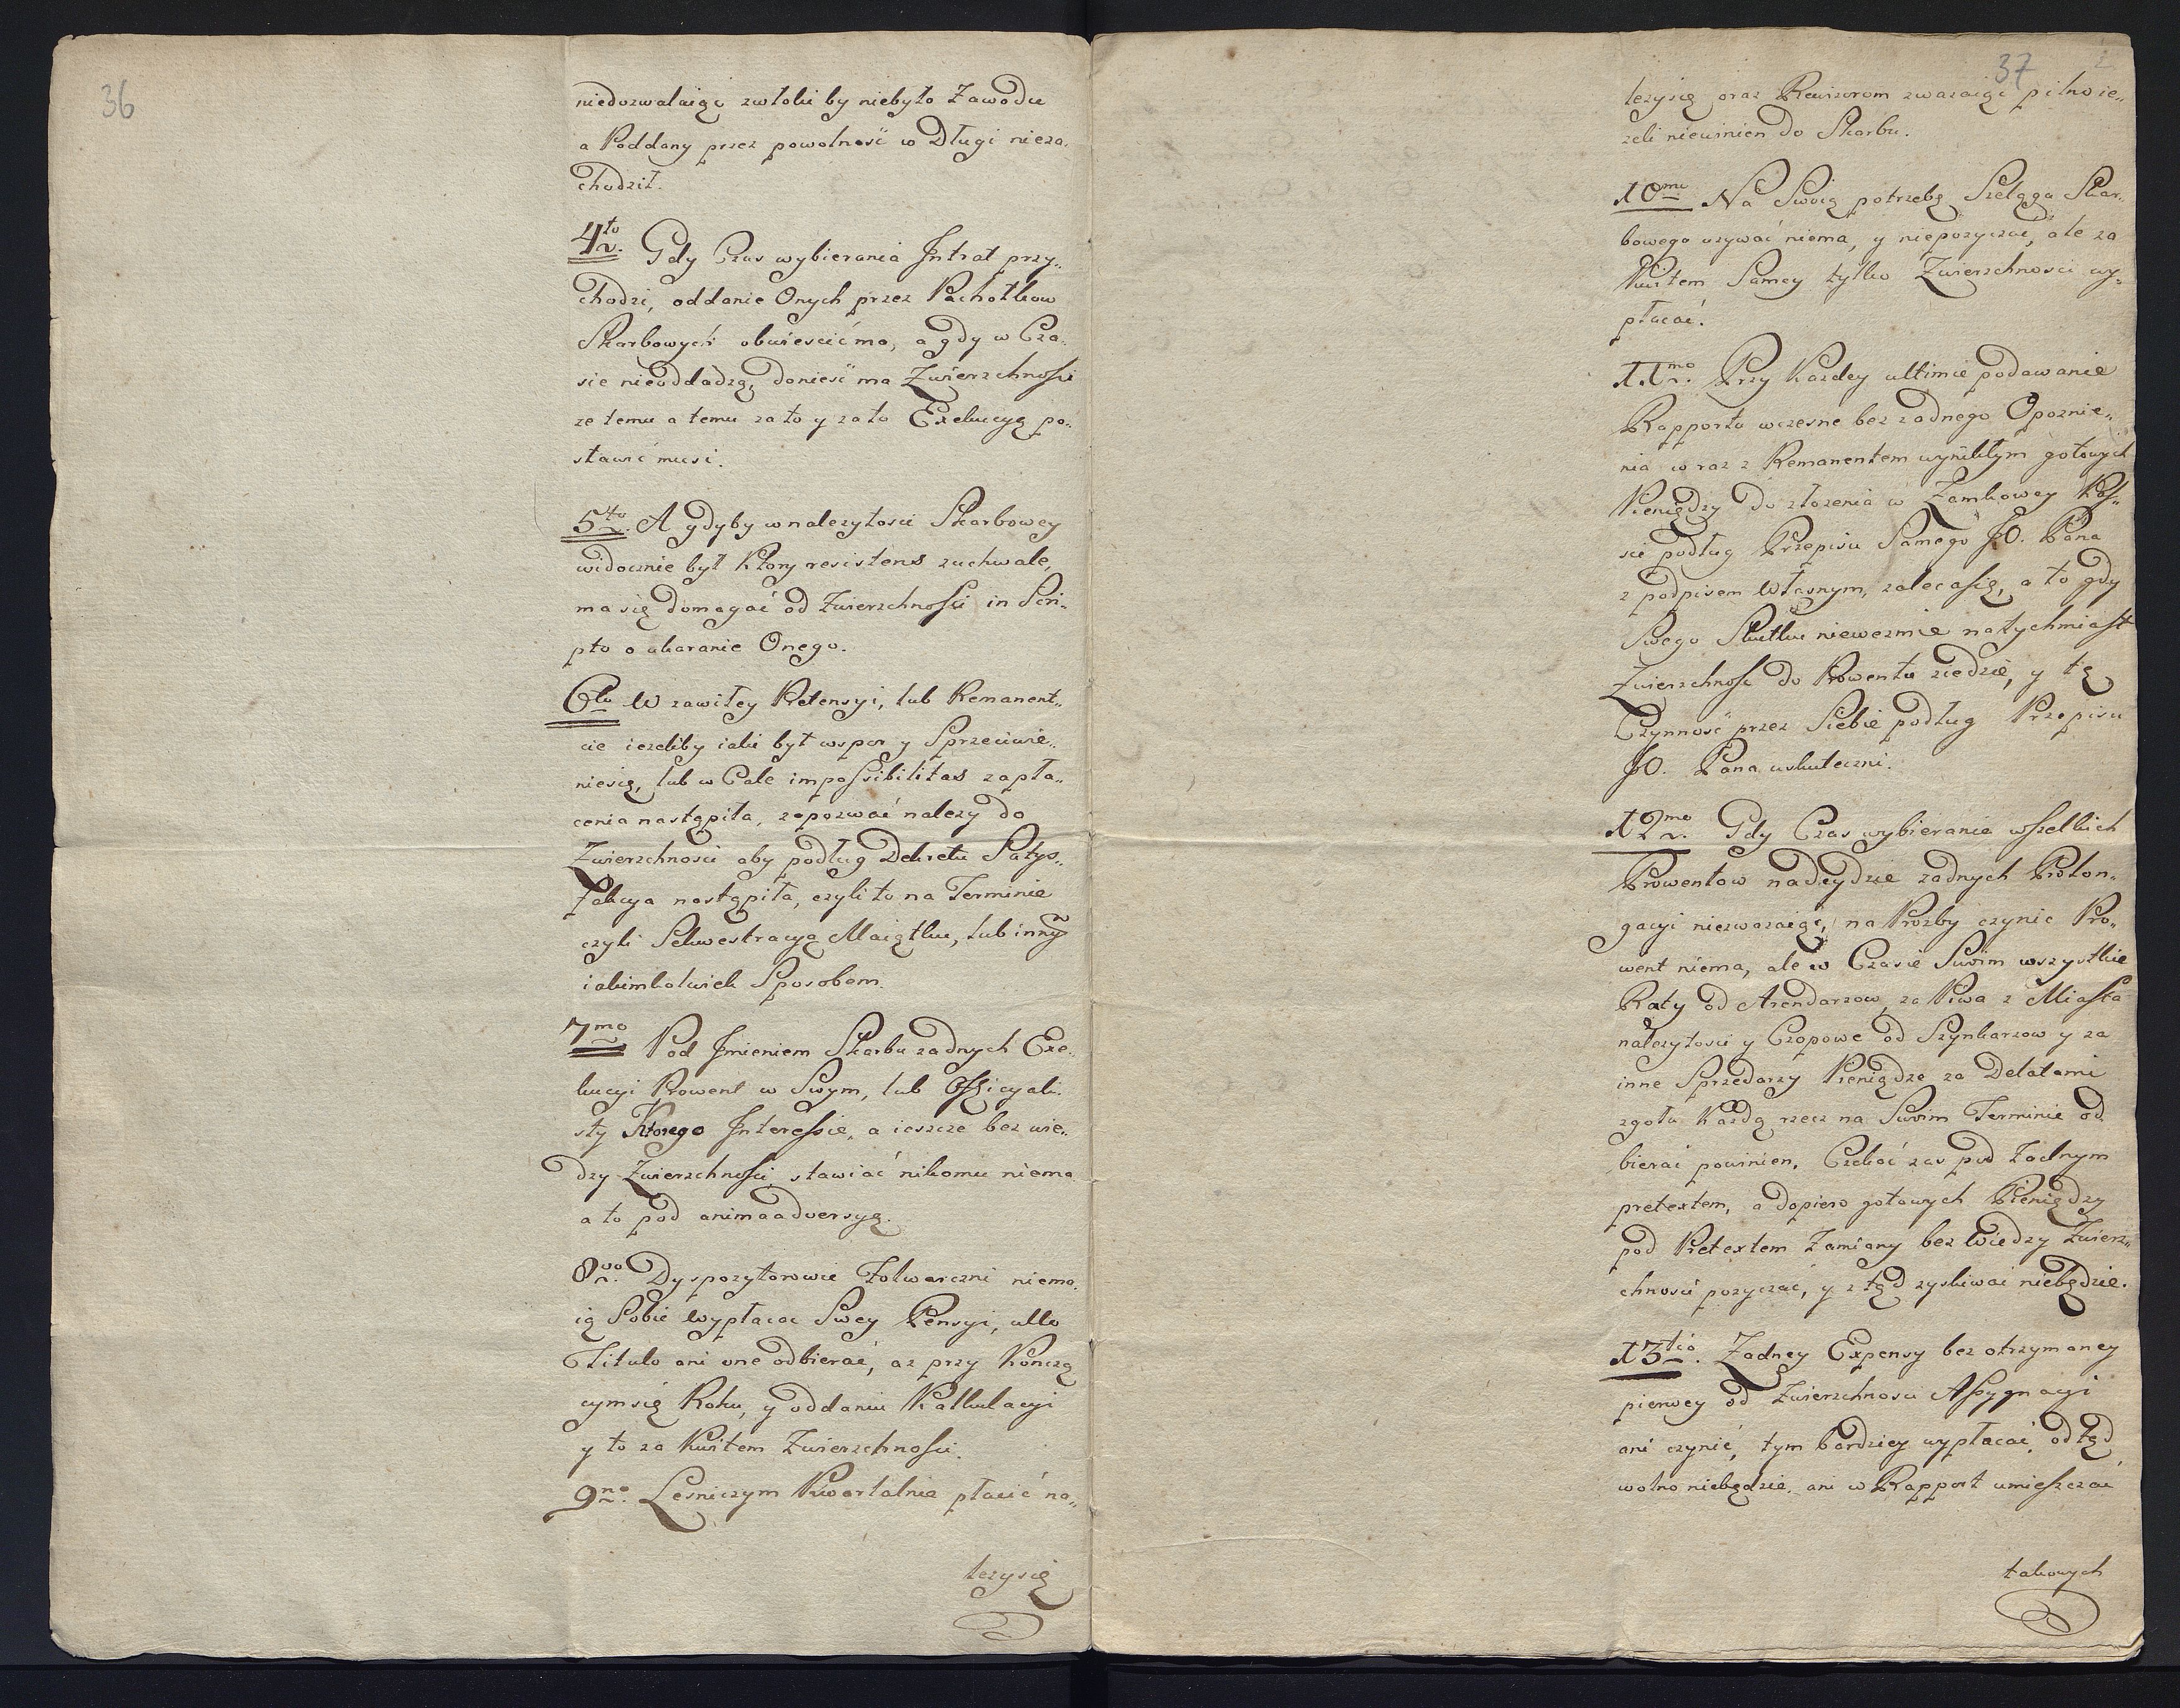 36
niedozwalaiąc zwłoki by niebyło Zawodu
a Poddany przez powolność w Długi nieza„
chodził.
4to. Gdy Czas wybierania Jntrat przy„
chodzi, oddanie Onych przez Pachołkow
Skarbowych obwieścić ma, a gdy w Cza„
sie nieoddadzą, donieść ma Zwierzchności
ze temu a temu za to y za to Exekucyą po„
stawić musi.
5to. A gdyby w nalezytości Skarbowey
widocznie był Ktory resistens zuchwale,
ma się domagać od Zwierzchności in Scri„
pto o ukaranie Onego.
6to W zawiłey Pretensyi, lub Remanent„
cie iezeliby iaki był wspor y Sprzeciwie„
niesię, lub w Cale impossibilitas zapła„
cenia nastąpiła, zapozwać nalezy do
Zwierzchności aby podług Dekretu Satys„
fakcya nastąpiła, czyli to na Terminie
czyli Sekwestracyą Maiątku, lub inny
iakimkolwiek Sposobem.
7mo Pod Jmieniem Skarbu zadnych Exe„
kucyi Prowent w Swym, lub Officyali„
sty Ktorego Jnteressie, a ieszcze bez wie„
dzy Zwierzchności, stawiać nikomu niema
a to pod animaadversyą.
8vo. Dyspozytorowie Folwarczni niema„
ią Sobie wypłacac Swey Pensyi, ullo
Titulo ani one odbierać, az przy Kończą
cymsię Roku, y oddaniu Kalkulacyi
y to za Kwitem Zwierzchności.
9no. Lesniczym Kwartalnie płacić na„
lezysię
37
2
lezysię oraz Rewizorom zwazaiąc pilno ie„
zeli niewinien do Skarbu.
10mo Na Swoią potrzebę Szeląga Skar„
bowego uzywać niema, y niepozyczac, ale za
Kwitem Samey tylko Zwierzchności wy„
płacać.
11mo. Przy Kazdey ultimie podawanie
Rapportu wczesne bez zadnego Opoznie„
nia wraz z Remanentem wynikłym gotowych
Pieniędzy do złozenia w Zamkowey Kas„
sie podług Przepisu Samego JO. Pana
z podpisem Własnym, zalecasię, a to gdy
Swego Skutku niewezmie natychmiast
Zwierzchność do Prowentu ziedzie, y tę
Czynność przez Siebie podług Przepisu
JO. Pana uskuteczni.
12mo. Gdy Czas wybierania wszelkich
Prowentow nadeydzie zadnych Prolon„
gacyi niezwazaiąc, na Prozby czynic Pro„
went niema, ale w Czasie Swoim wszystkie
Raty od Arendarzow, za Piwa z Miasta
nalezytosci y Czopowe od Szynkarzow y za
inne Sprzedarzy Pieniądze za Delatami
zgoła Kazdą rzecz na Swoim Terminie od
bierać powinien. Czekać zas pod Zadnym
pretextem, a dopiero gotowych Pieniędzy
pod Pretextem Zamiany bez Wiedzy Zwierz„
chności pozyczać, y ztąd zyskiwać niebędzie.
13tio. Zadney Expensy bez otrzymaney
pierwey od Zwierzchnosci Assygnacyi
ani czynić, tym bardziey wypłacać, odtąd
wolno niebędzie, ani w Rapport umieszczać
takowych